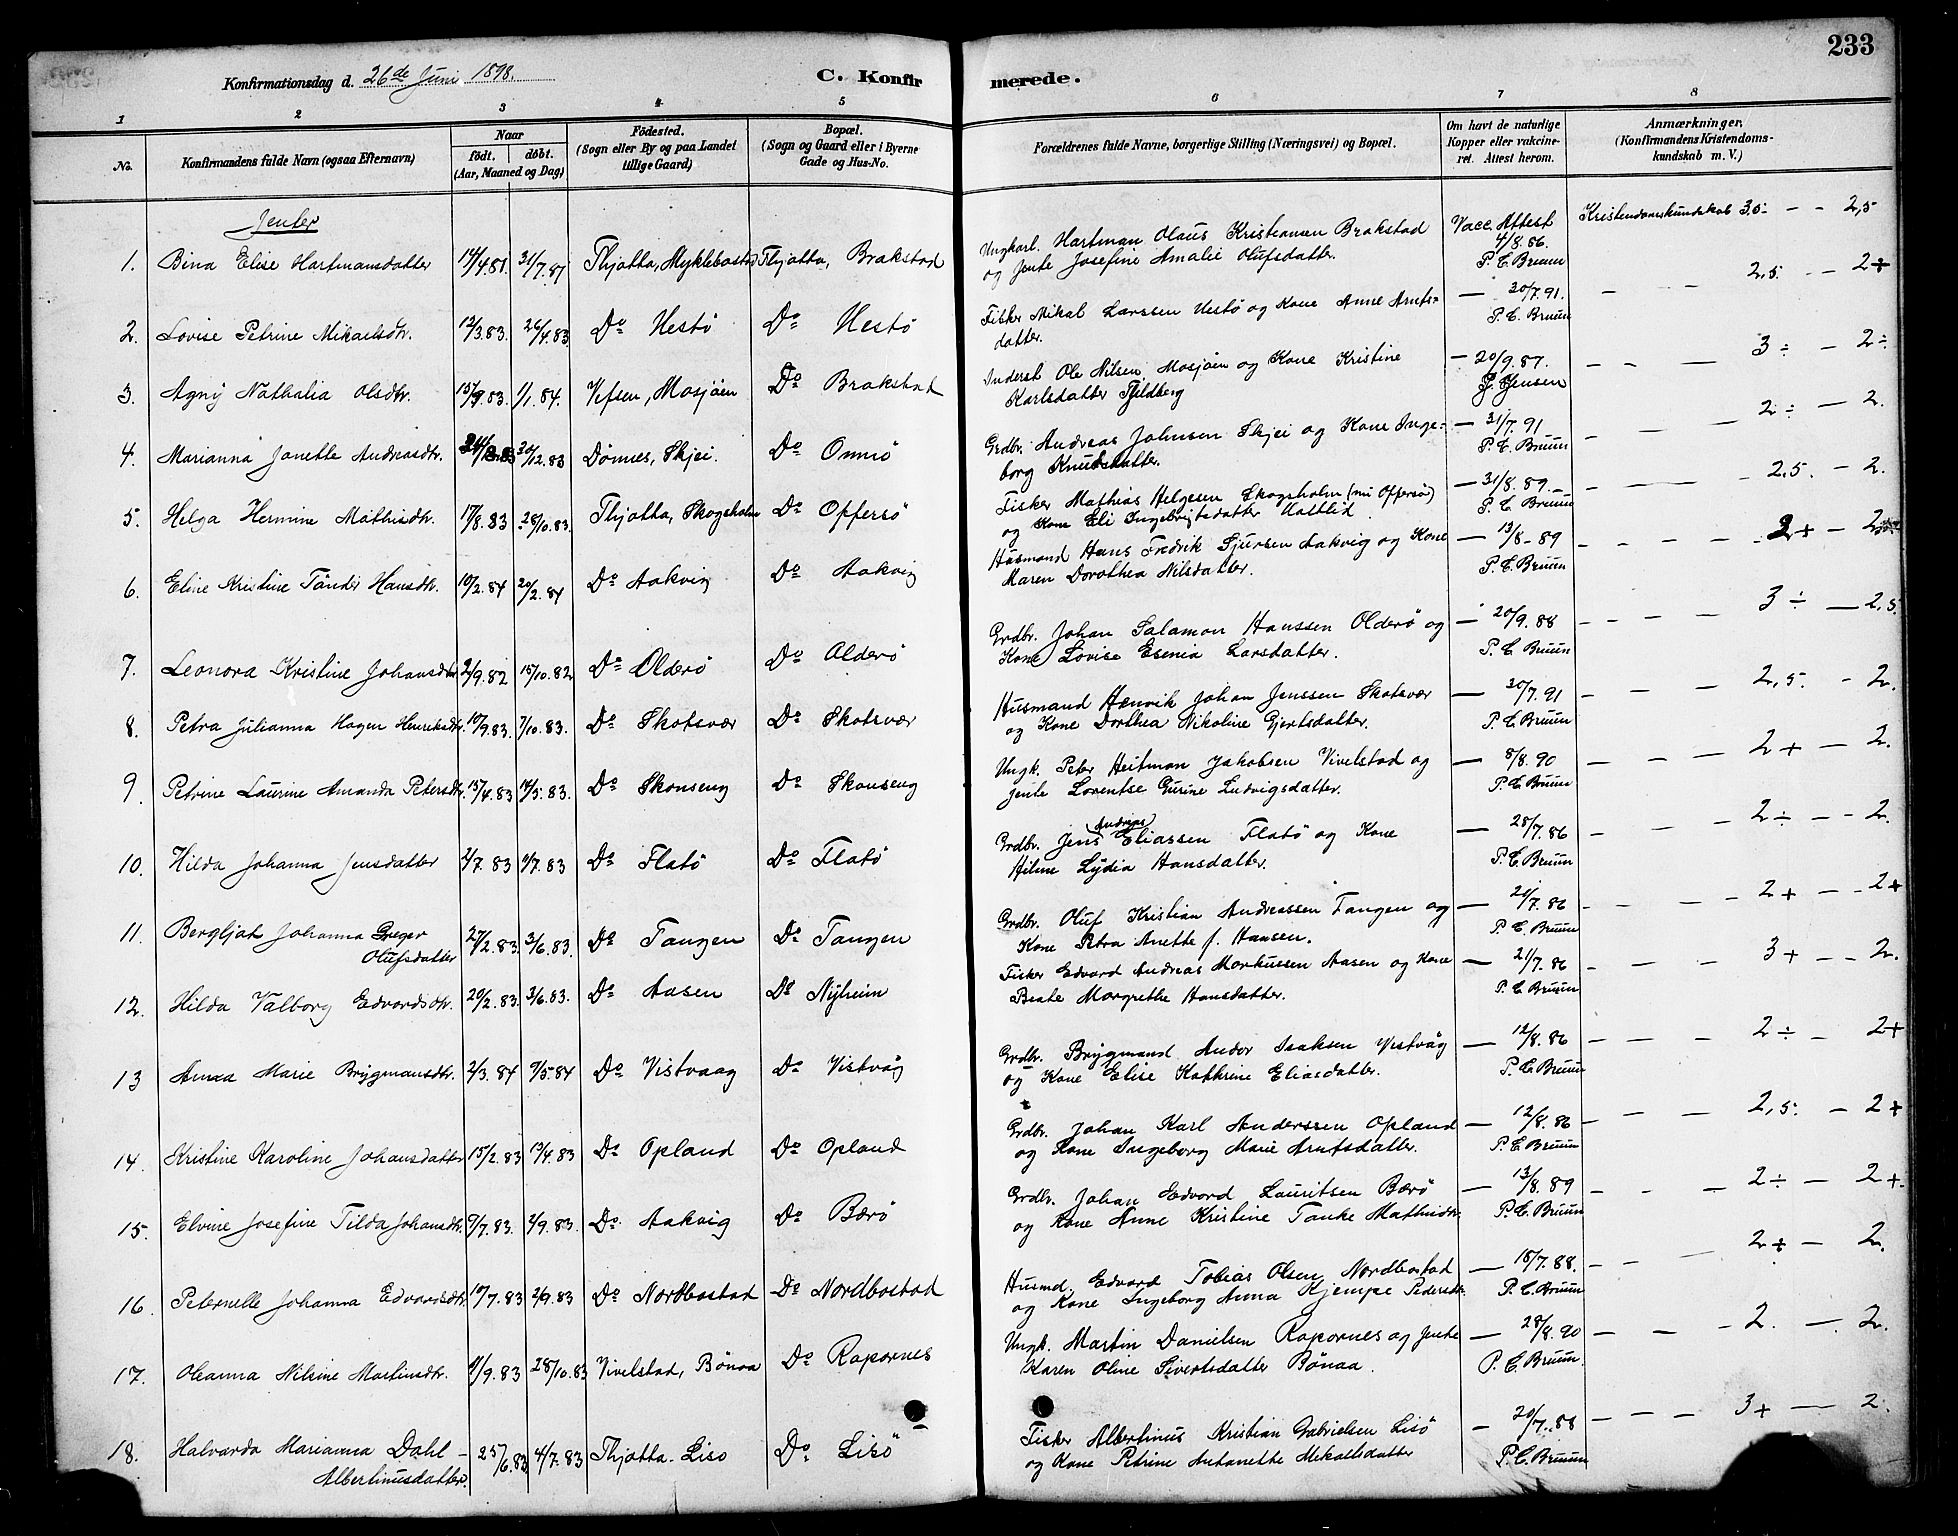 233
Konfirmationsdag d. 26de Juni 1898.
C. Konfirmerede.
1 2 3 4 5 6 7 8
No.
Konfirmandens fulde Navn (ogsaa Efternavn)
Naar
födt. döbt.
(Aar, Maaned og Dag)
Födested.
(Sogn eller By og paa Landet
tillige Gaard)
Bopæl.
(Sogn og Gaard eller i Byerne
Gade og Hus-No.
Forældrenes fulde Navne, borgerlige Stilling (Næringsvei) og Bopæl.
Om havt de naturlige
Kopper eller vakcine-
ret. Attest herom.
Anmærkninger,
(Konfirmandens Kristendoms-
kundskab m. V.)
Jenter
1. Bina Elise Hartmansdatter 14/4.81. 31/7.81 Thjøtta, Myklebostad Thjøtta, Brakstad
Ungkarl. Hartman Olaus Kristiansen Brakstad
og Jente Josefine Amalie Olufsdatter.
Vacc. Attest
4/8.86.
P. C. Bruun
Kristendomskundskab 3,5 - - 2,5
2. Lovise Petrine Mikaelsdtr. 12/3.83. 26/4.83 Do Hestö Do Hestö
Fisker Mikal Larssen Hestö og Kone Anne Arnts=
datter.
— 30/7.91.
P. C. Bruun
— — 2,5. — 2+
3. Agny Nathalia Olsdtr. 15/9.83. 1/1.84. Vefsen, Mosjöen Do Brakstad
Inderst Ole Nilsen Mosjöen og Kone Kristine
Karlsdatter Fjeldberg
— 20/9.87.
J. Jensen
- - — 3 ÷ — 2÷
4. Marianna Janette Andreasdtr. 20/12.83 Dønnes, Skjei. Do Omnö
Grdbr. Andreas Johnsen Skjei og Kone Inge-
borg Knutsdatter.
— 31/7.91
P. C. Bruun
- — — 2 ÷ — 2.
5. Helga Hermine Mathisdtr. 17/8.83 28/10.83. Thjøtta, Skogsholm Do Offersö
Fisker Mathias Helgesen Skogsholm (nu Offersö)
og Kone Eli Ingebrigtsdatter Hatlid
— 31/8.89.
P. C. Bruun
- — — 2,5. — 2.
6. Eline Kristine Tönder Hansdtr. 10/2.84 20/2.84 Do Aakvig Do Aakvig
Husmand Hans Fredrik Sjursen Aakvig og Kone
Maren Dorothea Nilsdatter.
— 13/8-89
P. C. Bruun
- - - 2+ — 2
7. Leonora Kristine Johansdtr 2/9.82 15/10.82 Do Olderö Do Olderö
Grdbr. Johan Salamon Hanssen Olderö og
Kone Lovise Esenia Larsdatter.
— 20/9.88
P. C. Bruun
- - — 3 ÷ — 2,5.
8. Petra Julianna Hagen Henriksdtr. 10/9.83. 7/10.83. Do Skotsvær Do Skotsvær
Husmand Henrik Johan Jenssen Skotsvær
og Kone Dorthea Nikoline Gjertsdatter.
— 30/7.91
P. C. Bruun
- — — 2,5. - 2.
9. Petrine Laurine Amanda Petersdtr. 15/4.83 14/5.83. Do Skonseng Do Skonseng
Ungk. Peter Heitman Jakobsen Vivelstad og
Jente Lorentse Gurine Ludvigsdatter.
— 8/8.90
P. C. Bruun
- — — 2 + — 2.
10. Hilda Johanna Jensdatter 2/7.83 9/7.83 Do Flatö Do Flatö
Grdbr. Jens Andreas Eliassen Flatö og Kone
Heline Lydia Hansdatter.
— 28/7.86
P. C. Bruun
- — — 2 ÷ - - 2.
11. Bergljot Johanna Greger
Olufsdatter 27/2.83. 3/6.83. Do Tangen Do Tangen
Grdbr. Oluf Kristian Andreassen Tangen og
Kone Petra Anette f. Hansen.
— 21/7.86
P. C. Bruun
- — — 2 + — - 2+
12. Hilda Valborg Edvardsdtr. 20/2.83. 3/6.83. Do Aasen Do Nyheim
Fisker Edvard Andreas Markussen Aasen og Kone
Beate Margrethe Hansdatter.
— 21/7.86
P. C. Bruun
- — — 3 + - - 2.
13 Anna Marie Brygmansdtr. 2/3.84 9/5.84 Do Vistvaag Do Vistvåg
Grdbr. Brygmand Andor Isaksen Vistvåg
og Kone Elise Kathrine Eliasdatter.
— 12/8.86
P. C. Bruun
— — — 2 ÷ - 2+
14. Kristine Karoline Johansdatter 15/2.83 17/4.83 Do Opland Do Opland
Grdbr. Johan Karl Anderssen Opland
og Kone Ingeborg Marie Arntsdatter.
— 12/8.86
P. C. Bruun
— — — 2,5. — 2+
15. Elvine Josefine Tilda Johansdtr. 9/7.83. 2/9.83. Do Aakvig Do Bærö
Grdbr. Johan Edvard Lauritsen Bærö
og Kone Anne Kristine Tanke Mathisdtr.
— 13/8.89
P. C. Bruun
- - - 2÷ — 2+
16. Peternelle Johanna Edvardsdtr. 17/7.83 2/9.83 Do Nordbostad Do Nordbostad
Husmd. Edvard Tobias Olsen Nordbostad
og Kone Ingeborg Anna Kjempe Pedersdtr.
— 18/7.88.
P. C. Bruun
- - — 2÷ — 2.
17. Oleanna Nilsine Martinsdtr. 9/9.83 28/10.83 Vivelstad, Bönaa Do Rapornes
Ungk. Martin Danielsen Rapornes og Jente
Karen Oline Sivertsdatter Bönaa.
— 28/8.90
P. C. Bruun.
— — - 2. — 2.
18. Halvarda Marianna Dahl -
Albertinusdatter. 25/6.83 4/7.83 Thjøtta. Lisø Do Lisö
Fisker Albertinus Kristian Gabrielsen Lisö
og Kone Petrine Antonette Mikalsdatter
— 20/7.88
P. C. Bruun
— — — 3+ — 2.